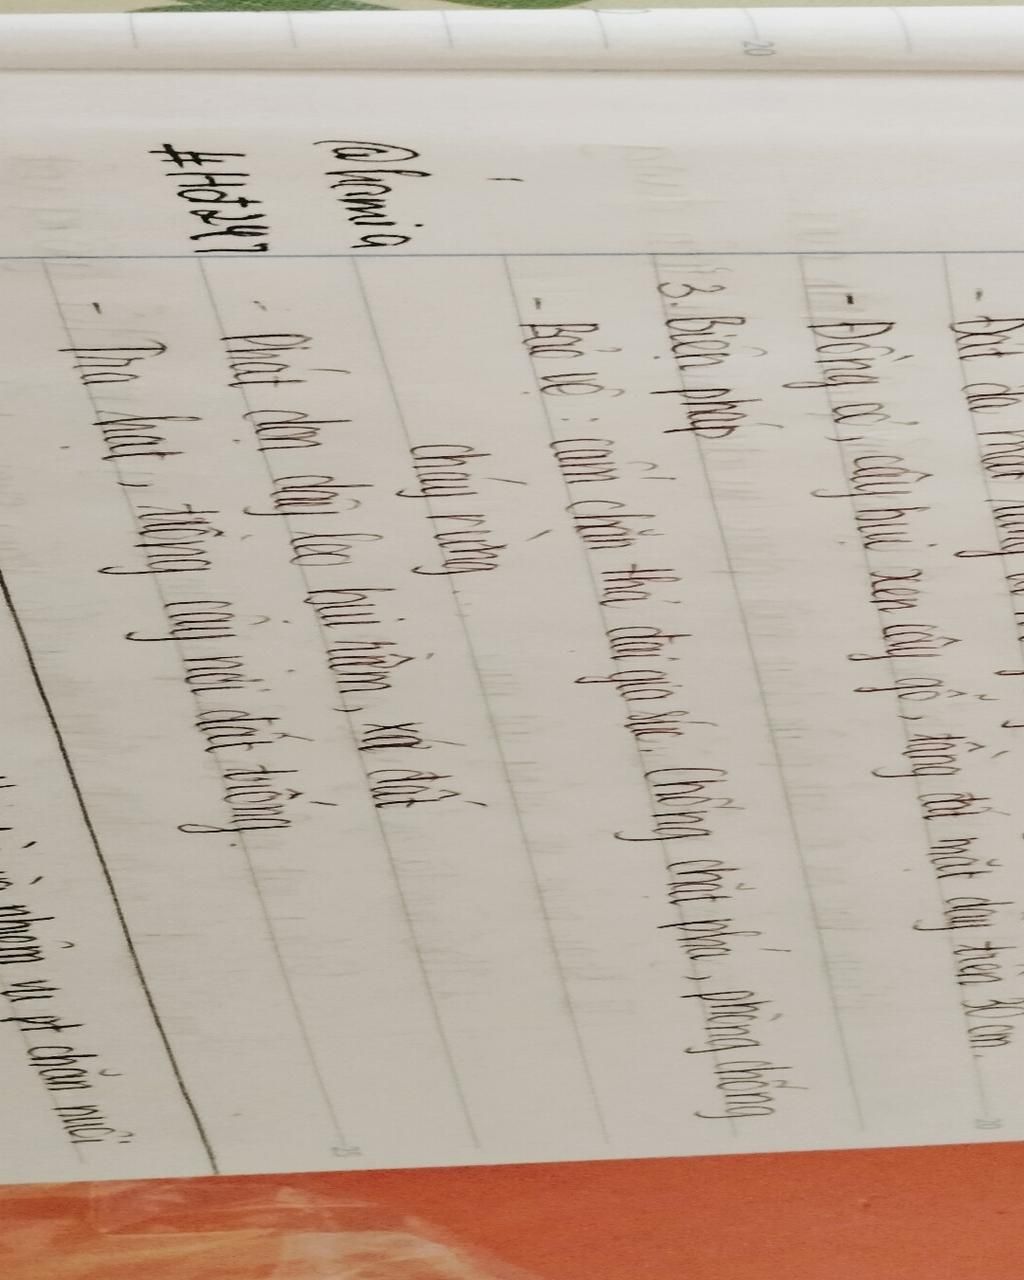 - Đồng cỏ, cây bụi xen cây gỗ, tầng đất mặt dày trên 30 cm.
3. Biện pháp
- Bảo vệ: cấm chăn thả đại gia súc. Chống chặt phá, phòng chống
cháy rừng
- Phát dọn dây leo bụi rậm, xới đất
- Tra hạt, trồng cây nơi đất trống.
@hamia
#Hđ247
nhóm vi pt chăn nuôi
20
20
25